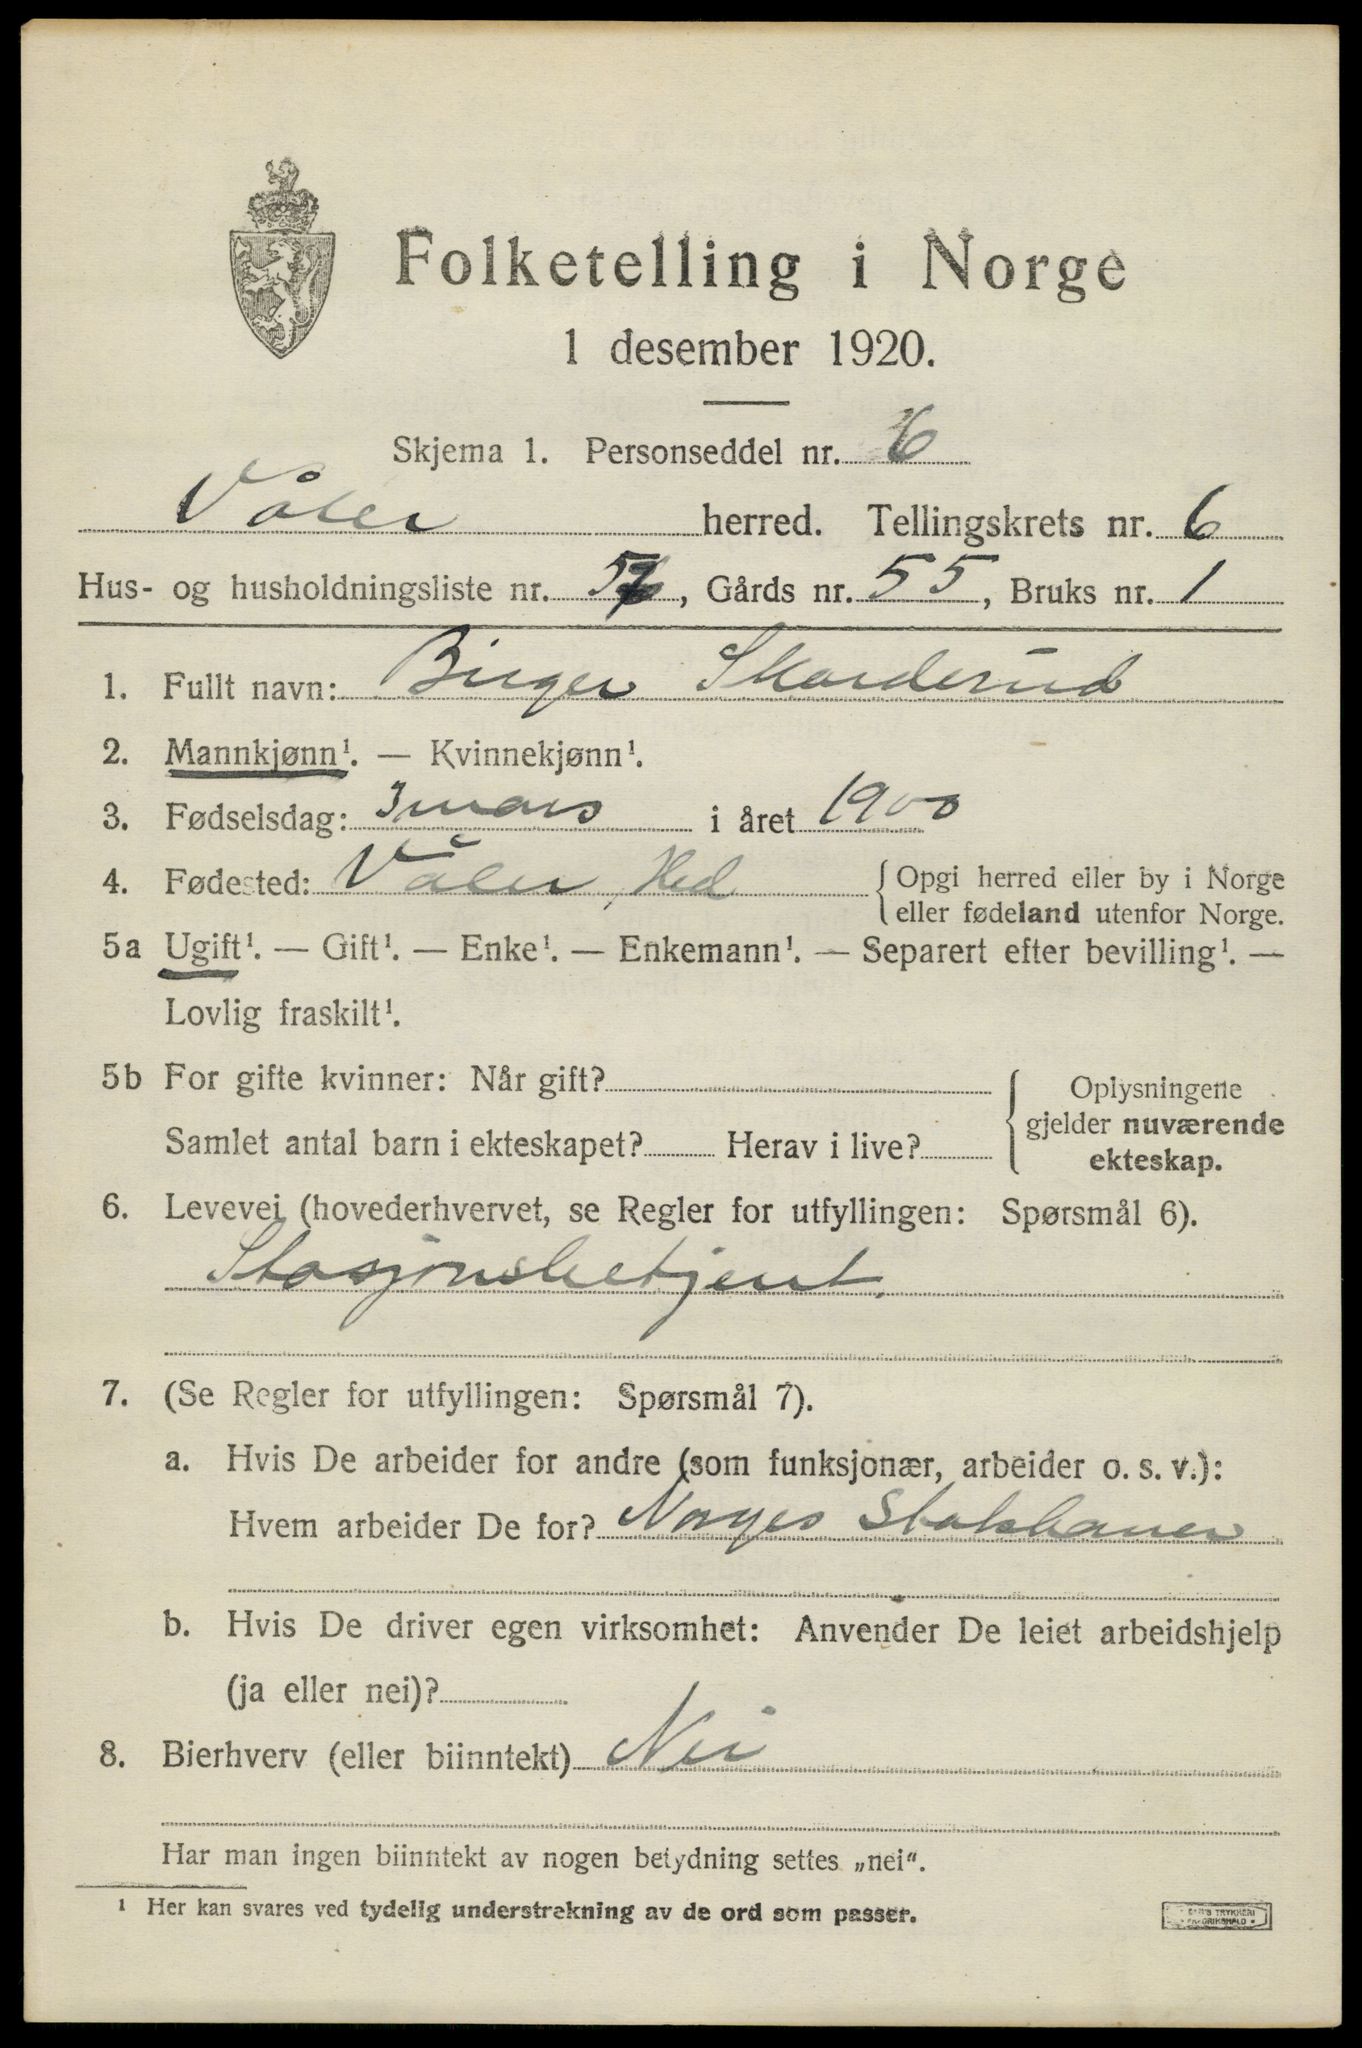 Folketelling i Norge
1 desember 1920.
Skjema 1. Personseddel nr. 6
Våler herred. Tellingskrets nr. 6
Hus- og husholdningsliste nr. , Gårds nr. 55, Bruks nr. 1
1. Fullt navn: Birger Skarderud
2. Mannkjønn¹. — Kvinnekjønn¹.
3. Fødselsdag: 3 mars i året 1900
4. Fødested: Våler, Hed { Opgi herred eller by i Norge
eller fødeland utenfor Norge.
5a Ugift¹. — Gift¹. — Enke¹. — Enkemann¹. — Separert efter bevilling¹. —
Lovlig fraskilt¹.
5b For gifte kvinner: Når gift? { Oplysningene
gjelder nuværende
Samlet antal barn i ekteskapet? Herav i live? ekteskap.
6. Levevei (hovederhvervet, se Regler for utfyllingen: Spørsmål 6).
Stasjonsbetjent.
7. (Se Regler for utfyllingen: Spørsmål 7).
a. Hvis De arbeider for andre (som funksjonær, arbeider o. s. v.):
Hvem arbeider De for? Norges Statsbaner
b. Hvis De driver egen virksomhet: Anvender De leiet arbeidshjelp
(ja eller nei)?
8. Bierhverv (eller biinntekt) Nei
Har man ingen biinntekt av nogen betydning settes „nei“.
¹ Her kan svares ved tydelig understrekning av de ord som passer.